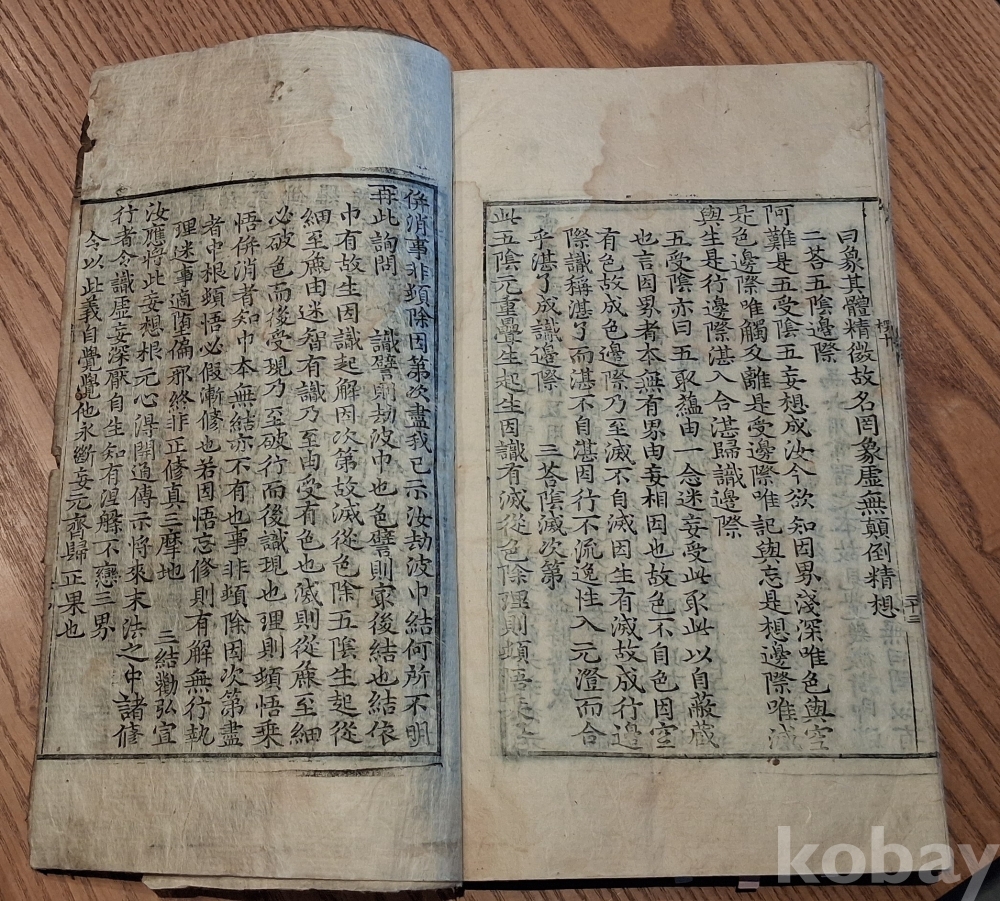 曰象其體精微故名罔象虛無顚倒精想
二荅五陰邊際
阿難是五受陰五妄想成汝今欲知因界淺深唯色與空
是色邊際唯觸及離是受邊際唯記與忘是想邊際唯滅
與生是行邊際湛入合湛歸識邊際
五受陰亦曰五取蘊由一念迷妄受此取此以自蔽藏
也言因界者本無有界由妄相因也故色不自色因空
有色故成色邊際乃至滅不自滅因生有滅故成行邊
際識稱湛了而湛不自湛因行不流逸性入元澄而合
乎湛了成識邊際 三荅陰滅次第
此五陰元重疊生起生因識有滅從色除理則頓悟乗悟
併消事非頓除因第次盡我已示汝劫波巾結何所不明
再此詢問 識譬則劫波巾也色譬則㝡後結也結依
巾有故生因識起解因次第故滅從色除五陰生起從
細至麁由迷智有識乃至由受有色也滅則從麁至細
必破色而後受現乃至破行而後識現也理則頓悟乗
悟併消者知巾本無結亦不有也事非頓除因次第盡
者中根頓悟必假漸修也若因悟忘修則有解無行執
理迷事適墮偏邪終非正修真三摩地 三結勸弘宣
汝應將此妄想根元心得開通傳示將來末法之中諸修
行者令識虛妄深厭自生知有涅槃不戀三界
令以此義自覺覺他永斷妄元齊歸正果也
kobay